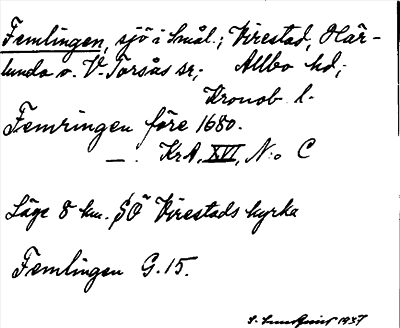 Femlingen, sjö i Smål.; Virestad, Här-
lunda o. V. Torsås sr; Allbo hd;
Kronob. l.
Femringen före 1680.
— . KrA, XVI, N:o C
Läge 8 km. SO Virestads kyrka
Femlingen G.15.
S. Lundquist 1937